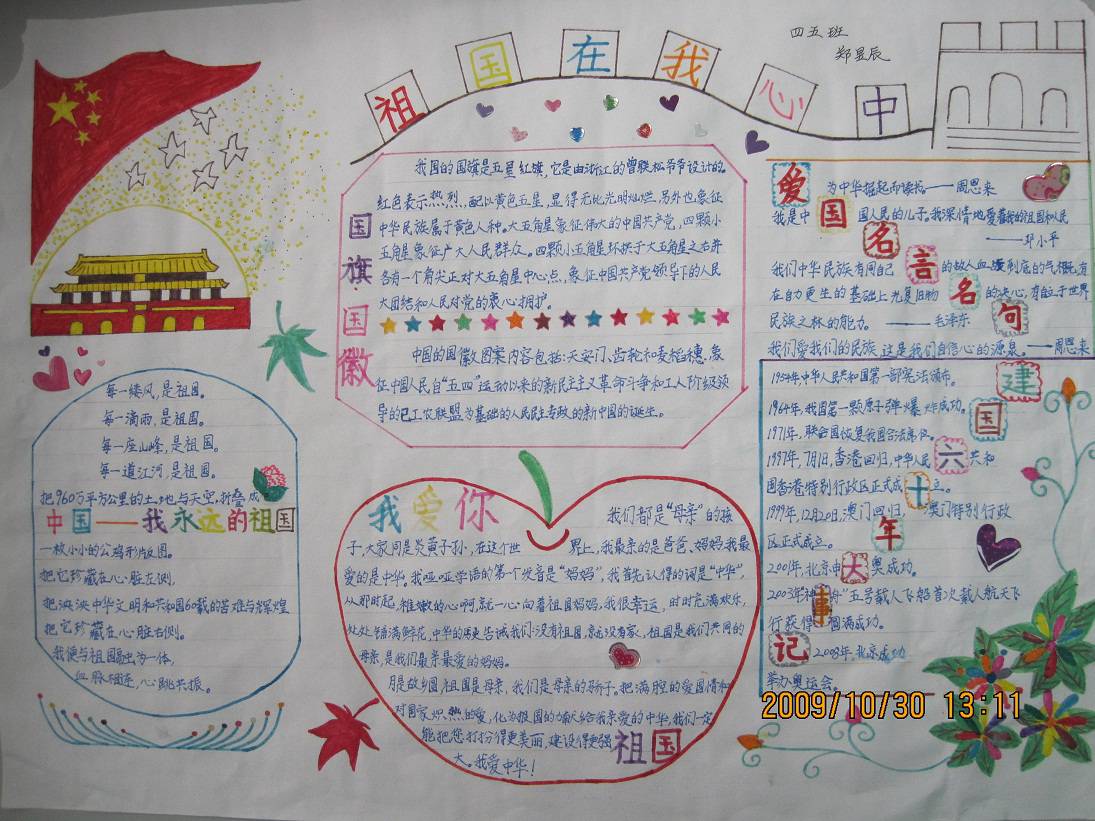 祖国在我心中
四五班
郑昱辰
国旗国徽
我国的国旗是五星红旗,它是由浙江的曾联松爷爷设计的。
红色表示热烈,配以黄色五星,显得无比光明灿烂,另外也象征
中华民族属于黄色人种。大五角星象征伟大的中国共产党,四颗小
五角星象征广大人民群众。四颗小五角星环拱于大五角星之右并
各有一个角尖正对大五角星中心点,象征中国共产党领导下的人民
大团结和人民对党的衷心拥护。
中国的国徽图案内容包括:天安门、齿轮和麦稻穗,象
征中国人民自“五四”运动以来的新民主主义革命斗争和工人阶级领
导的已工农联盟为基础的人民民主专政的新中国的诞生。
爱国名言名句
为中华掘起而读书——周恩来
我是中国人民的儿子。我深情地爱着我的祖国和人民
——邓小平
我们中华民族有同自己的敌人血战到底的气概,有
在自力更生的基础上光复旧物的决心,有能立于世界
民族之林的能力。——毛泽东
我们爱我们的民族,这是我们自信心的源泉。——周恩来
每一缕风,是祖国。
每一滴雨,是祖国。
每一座山峰,是祖国。
每一道江河,是祖国。
把960万平方公里的土地与天空,折叠成
中国——我永远的祖国
一枚小小的公鸡形版图。
把它珍藏在心脏左侧,
把泱泱中华文明和共和国60载的苦难与辉煌
把它珍藏在心脏右侧。
我便与祖国融为一体,
血脉相连,心跳共振。
我爱你
祖国
我们都是“母亲”的孩
子,大家同是炎黄子孙,在这个世界上,我最亲的是爸爸、妈妈,我最
爱的是中华。我哑哑学语的第一个发音是“妈妈”,我首先认得的词是“中华”,
从那时起,稚嫩的心啊,就一心向着祖国妈妈,我很幸运,时时充满欢乐,
处处铺满鲜花,中华的历史告诫我们:没有祖国,就没有家,祖国是我们共同的
母亲,是我们最亲最爱的妈妈。
月是故乡圆,祖国是母亲,我们是母亲的骄子。把满腔的爱国情和
对国家炽热的爱,化为报国的
给我亲爱的中华,我们一定
能把您打扮得更美丽,建设得更强
大。我爱中华!
建国六十年大事记
1954年中华人民共和国第一部宪法颁布。
1964年,我国第一颗原子弹爆炸成功。
1971年,联合国恢复我国合法席位。
1997年,7月1日,香港回归,中华人民共和
国香港特别行政区正式成立。
1999年,12月20日,澳门回归,澳门特别行政
区正式成立。
2001年,北京申奥成功。
2003年“神舟”五号载人飞船首次载人航天飞
行获得圆满成功。
2008年,北京成功
举办奥运会。
2009/10/30 13:11